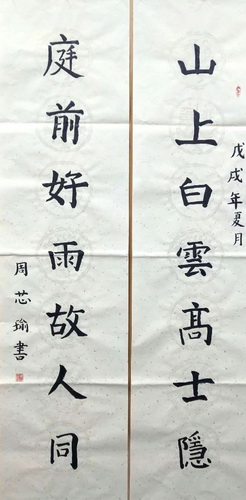 山上白雲高士隱
戊戌年夏月
庭前好雨故人同
周芯瑜書